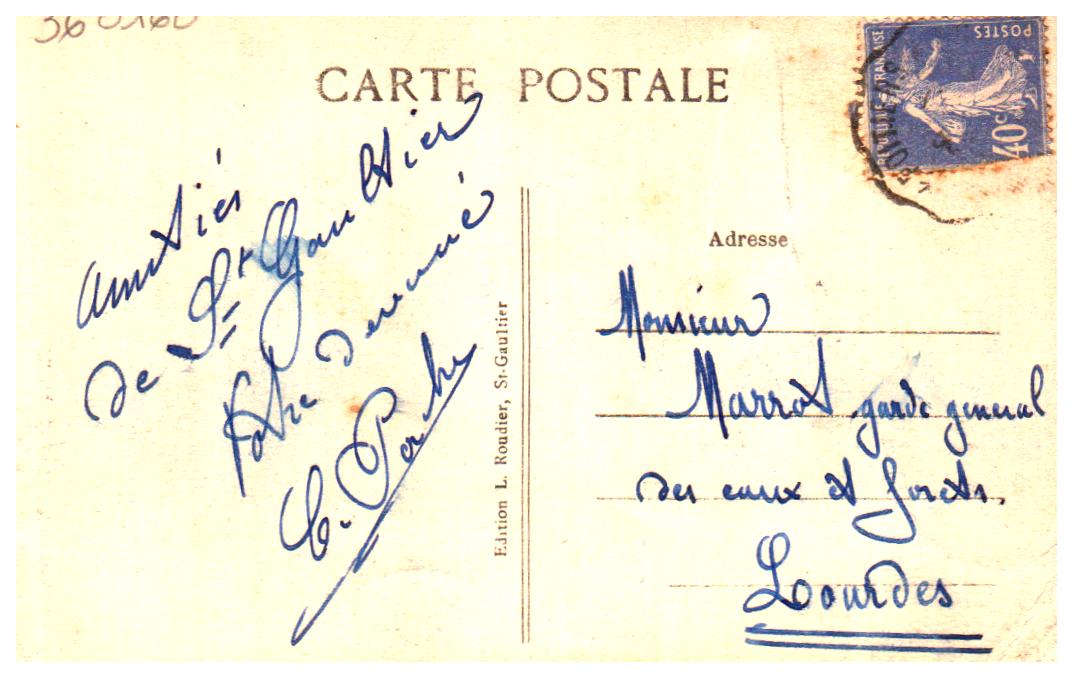 360160
CARTE POSTALE
POSTES
FRANÇAISE
40c
Amitiés
de St Gaultier
Votre devoué
C. Porche
Edition L. Roudier, St-Gaultier
Adresse
Monsieur
Marrot garde general
des eaux et forets.
Lourdes